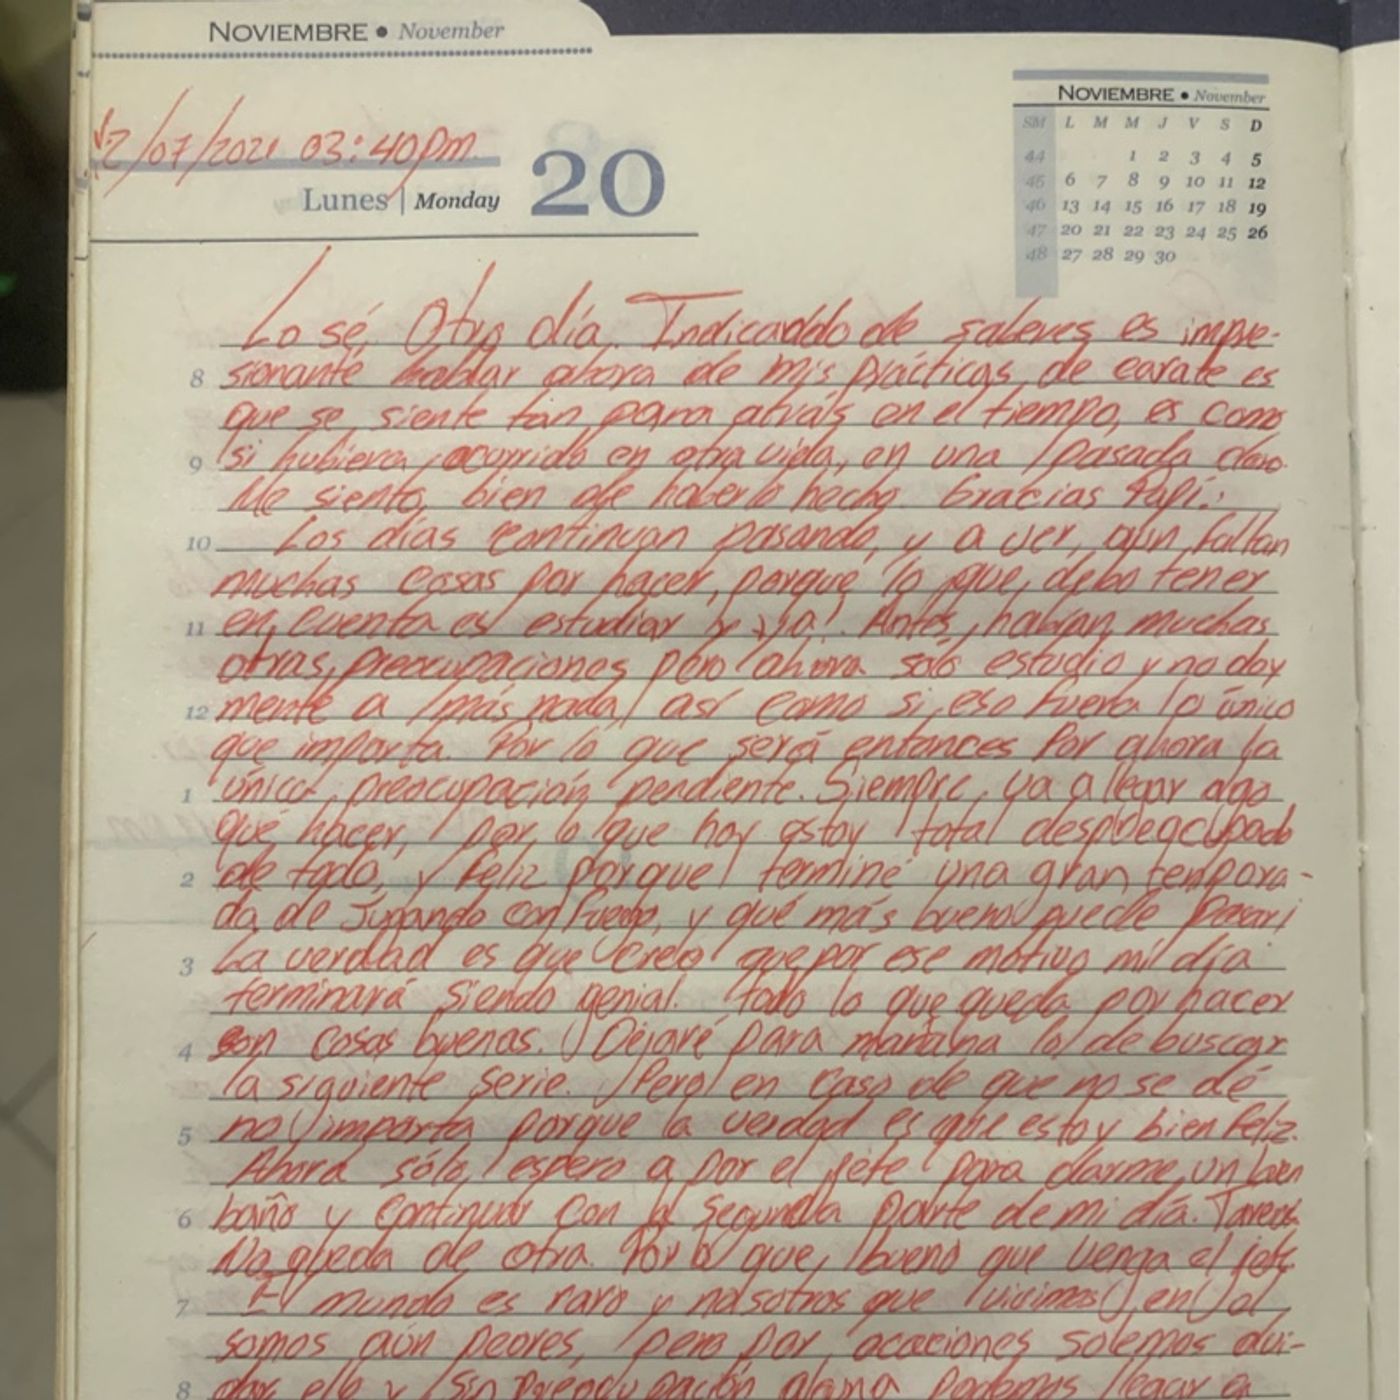 NOVIEMBRE • November
12/07/2021 03:40pm
Lunes | Monday 20
NOVIEMBRE • November
SM L M M J V S D
44 1 2 3 4 5
45 6 7 8 9 10 11 12
46 13 14 15 16 17 18 19
47 20 21 22 23 24 25 26
48 27 28 29 30
Lo sé. Otro día. de saberes es impre-
8 sionante hablar ahora de mis prácticas de carate es
que se siente tan para atrás en el tiempo, es como
9 si hubiera ocurrido en otra vida, en una pasada claro.
Me siento bien de haberlo hecho. Gracias Papi!
10 Los días continuan pasando, y a ver, aún faltan
muchas cosas por hacer, porque lo que debo tener
11 en cuenta es estudiar y ya! Antes habían muchas
otras preocupaciones pero ahora sólo estudio y no doy
12 mente a más nada, así como si eso fuera lo único
que importa. Por lo que será entonces por ahora la
1 única preocupación pendiente. Siempre va a llegar algo
qué hacer, por lo que hoy estoy total despreocupado
2 de todo, y feliz porque terminé una gran tempora-
da de Jugando con Fuego, y qué más bueno puede pasar!
3 La verdad es que creo que por ese motivo mi día
terminará siendo genial. Todo lo que queda por hacer
4 son cosas buenas. Dejaré para mañana lo de buscar
la siguiente serie. Pero en caso de que no se dé
5 no importa porque la verdad es que estoy bien feliz.
Ahora sólo espero a por el jefe para darme un buen
6 baño y continuar con la segunda parte de mi día. Tareas.
No queda de otra. Por lo que, bueno que venga el jefe.
7 El mundo es raro y nosotros que vivimos en él
somos aún peores, pero por ocaciones solemos olvi-
8 dar ello y sin alguna podemos llegar a